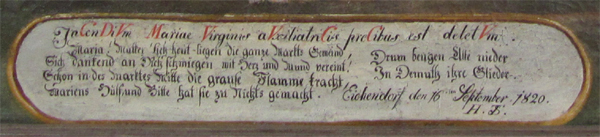 InCenDiVm Mariae Virginis aVXiliatriCis preCibus est deletVm.
Maria! Mutter! sich heut liegen die ganze Markts Gemeind,
Sich dankend an Dich schmiegen mit Herz und Mund vereint!
Schon in des Marktes Mitte die grause Flamme kracht,
Mariens Hülf und Bitte hat sie zu Nichts gemacht.
Drum beugen Alle nieder
In Demuth ihre Glieder.
Eichendorf den 16ten September 1820.
H. B.